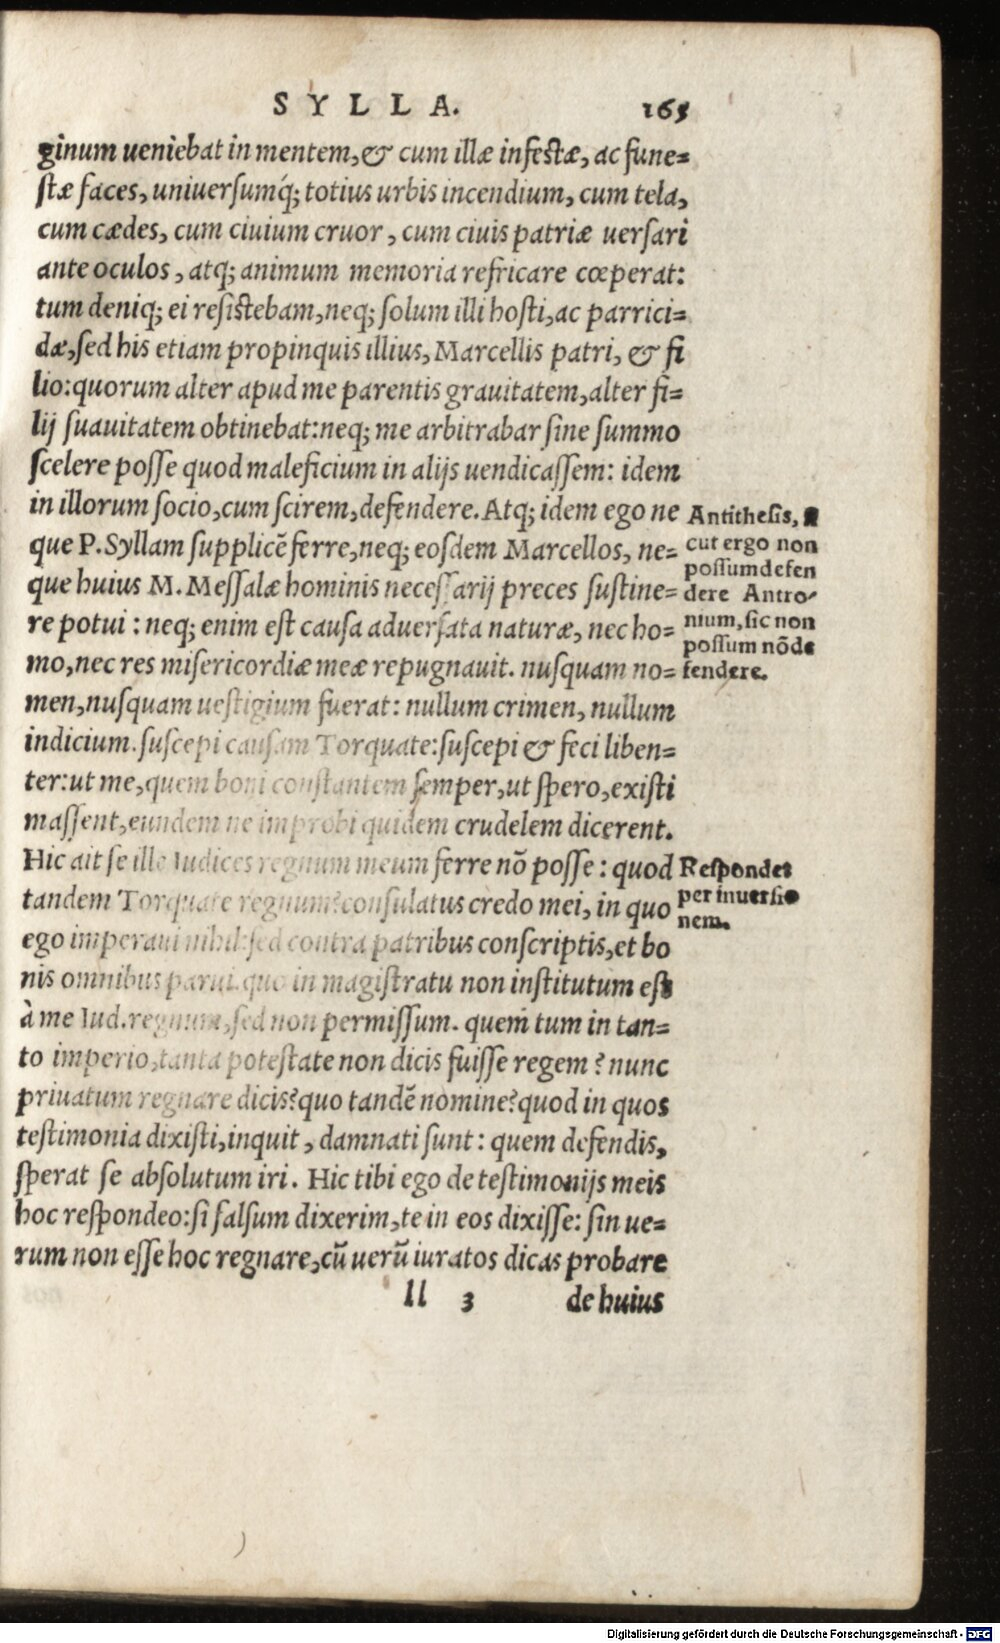 SYLLA. 165
ginum ueniebat in mentem, & cum illæ infestæ, ac fune=
stæ faces, uniuersumq́; totius urbis incendium, cum tela,
cum cædes, cum ciuium cruor, cum ciuis patriæ uersari
ante oculos, atq; animum memoria refricare cœperat:
tum deniq; ei resistebam, neq; solum illi hosti, ac parrici=
dæ, sed his etiam propinquis illius, Marcellis patri, & fi
lio: quorum alter apud me parentis grauitatem, alter fi=
lij suauitatem obtinebat: neq; me arbitrabar sine summo
scelere posse quod maleficium in alijs uendicassem: idem
in illorum socio, cum scirem, defendere. Atq; idem ego ne
que P. Syllam supplicē ferre, neq; eosdem Marcellos, ne=
que huius M. Messalæ hominis necessarij preces sustine=
re potui: neq; enim est causa aduersata naturæ, nec ho=
mo, nec res misericordiæ meæ repugnauit. nusquam no=
men, nusquam uestigium fuerat: nullum crimen, nullum
indicium. suscepi causam Torquate: suscepi & feci liben=
ter: ut me, quem boni constantem semper, ut spero, existi
massent, eundem ne improbi quidem crudelem dicerent.
Hic ait se ille Iudices regnum meum ferre nō posse: quod
tandem Torquate regnum? consulatus credo mei, in quo
ego imperaui nihil: sed contra patribus conscriptis, et bo
nis omnibus parui. quo in magistratu non institutum est
à me Iud. regnum, sed non permissum. quem tum in tan=
to imperio, tanta potestate non dicis fuisse regem? nunc
priuatum regnare dicis? quo tandē nomine? quod in quos
testimonia dixisti, inquit, damnati sunt: quem defendis,
sperat se absolutum iri. Hic tibi ego de testimonijs meis
hoc respondeo: si falsum dixerim, te in eos dixisse: sin ue=
rum non esse hoc regnare, cū uerū iuratos dicas probare
ll 3 de huius
Antithesis,
cut ergo non
possum defen
dere Antro-
nium, sic non
possum nō de
fendere.
Respondet
per inuersio
nem.
Digitalisierung gefördert durch die Deutsche Forschungsgemeinschaft - DFG